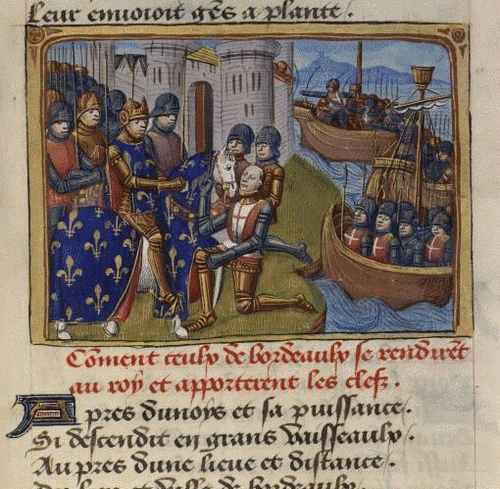 Leur enuoioit gẽs a plante.
Cõment ceulx de bordeaulx se rendirẽt
au roy et apporterent les clefz.
Apres dunoys et sa puissance.
Si descendit en grans vaisseaulx.
Au pres dune lieue et distance.
de bordeaulx